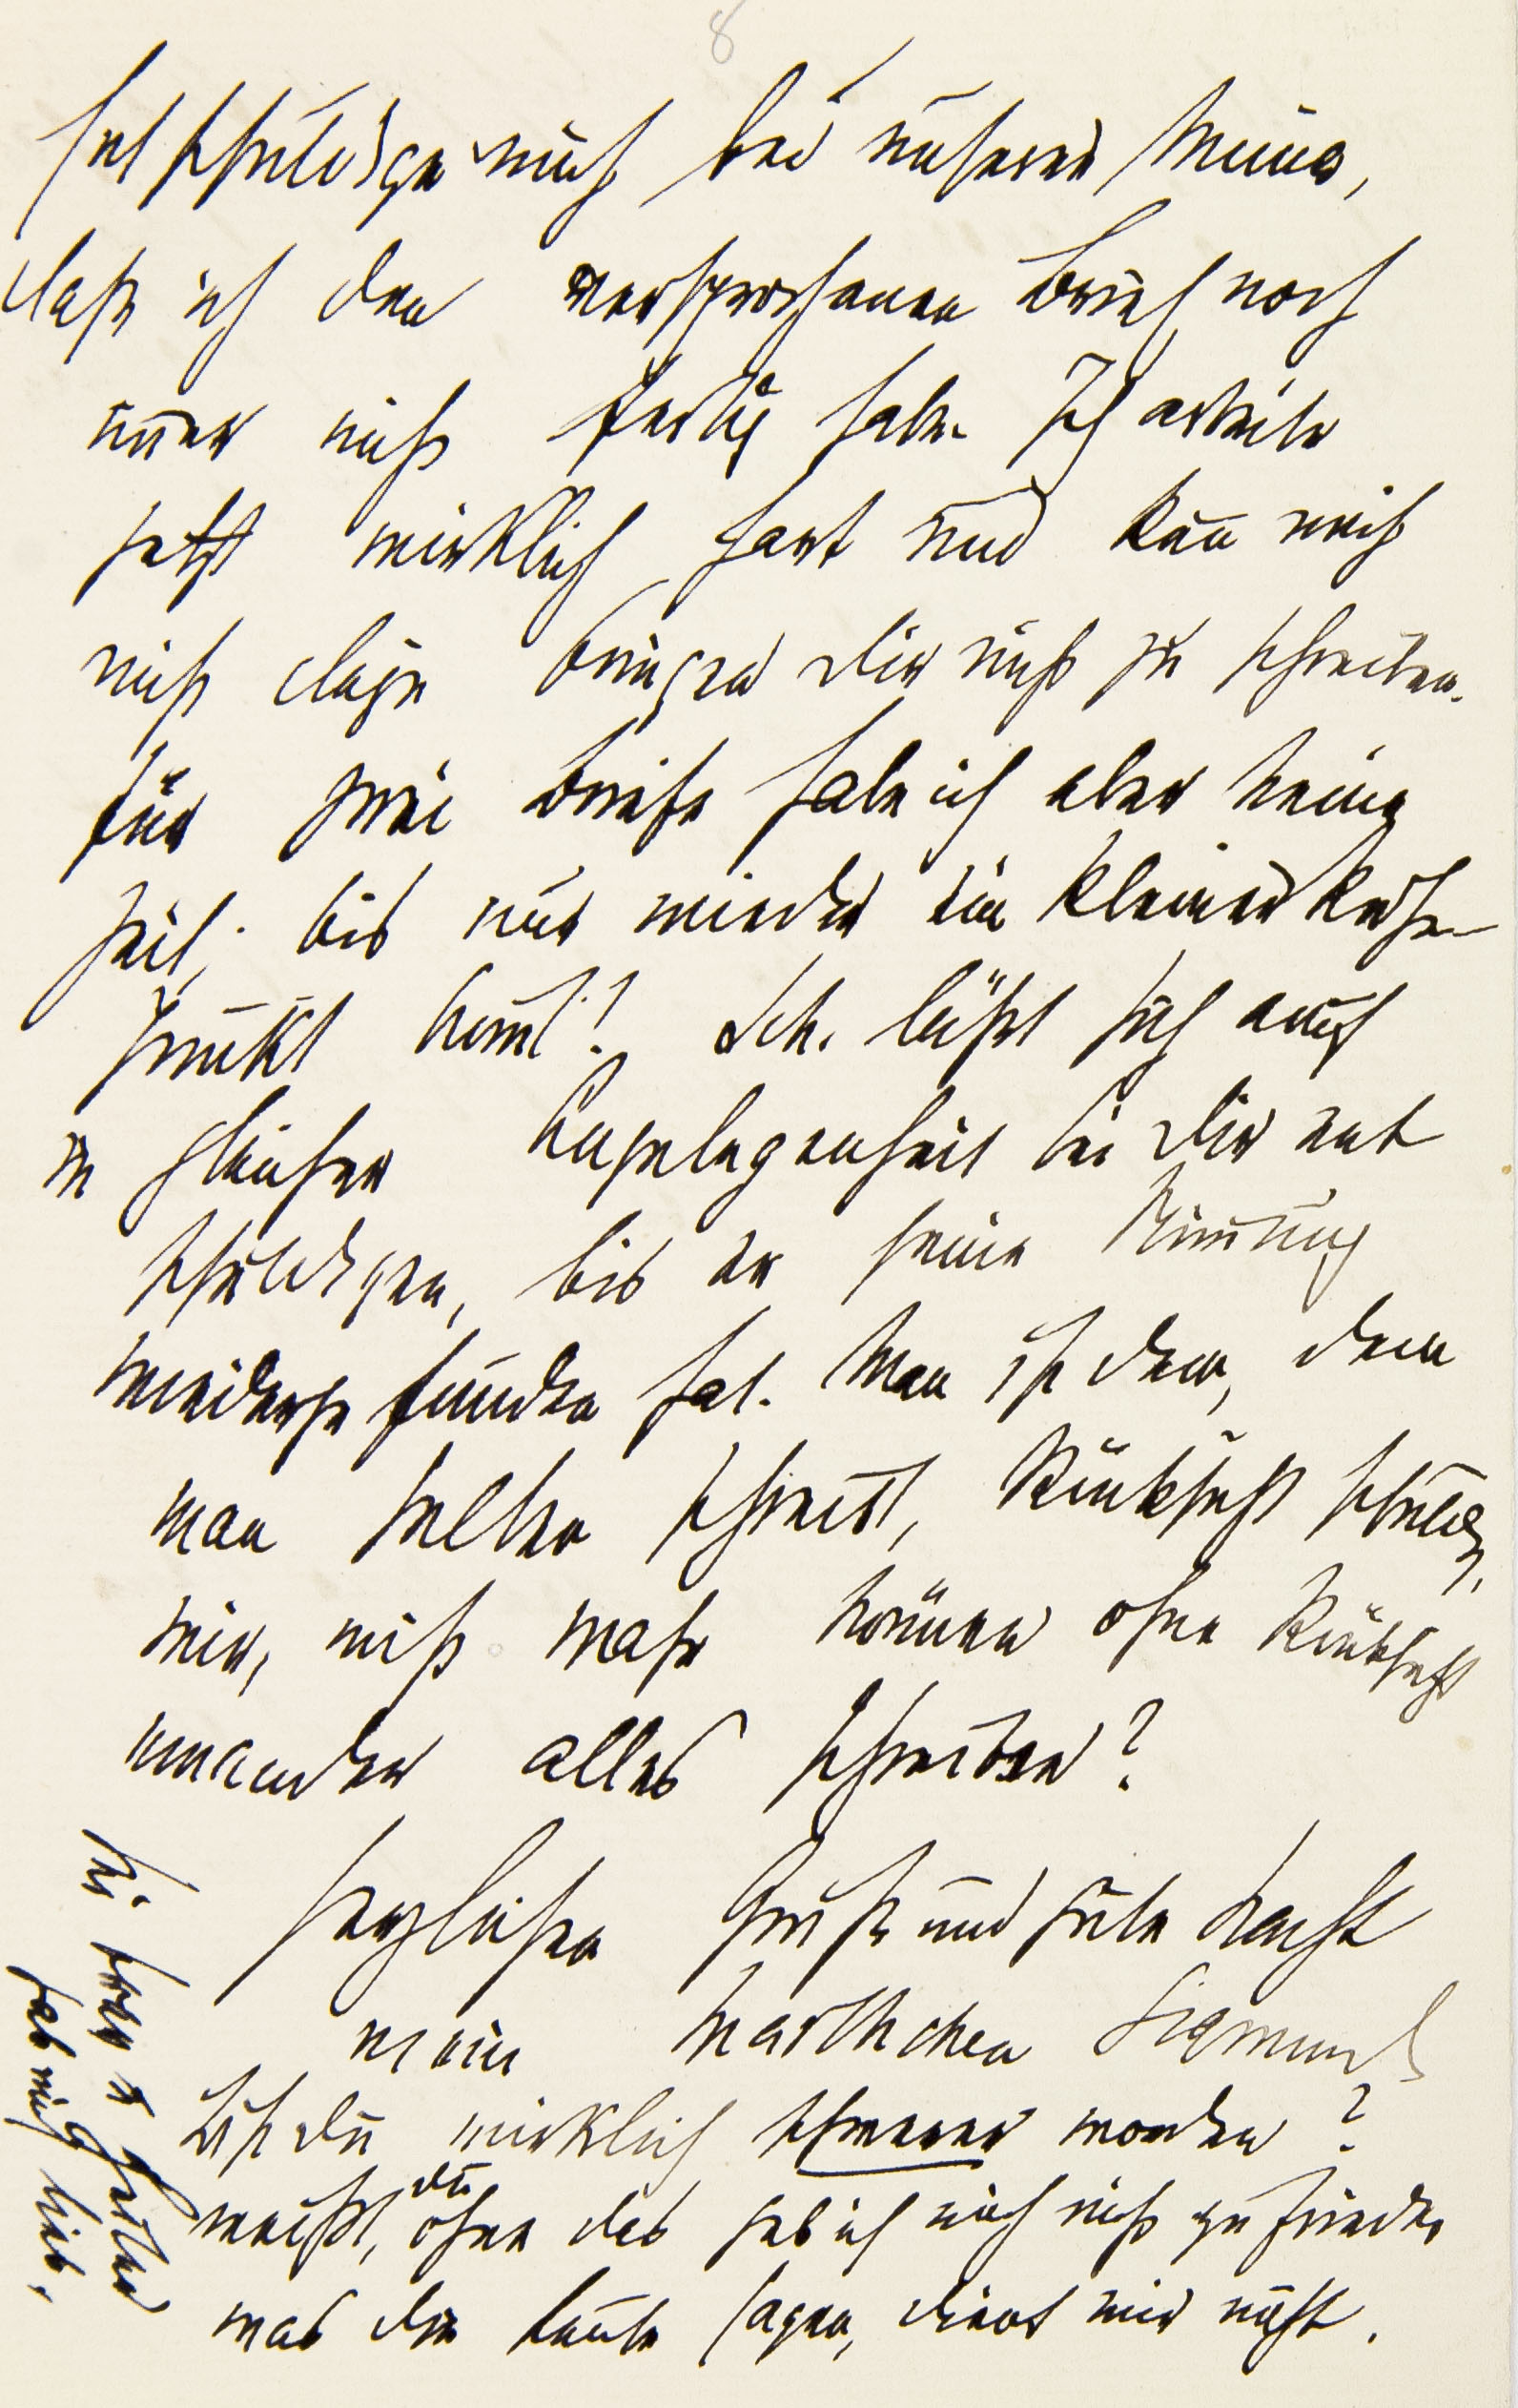 8
Entschuldige mich bei unserer Minna,
daß ich den versprochenen Brief noch
im̅er nicht fertig habe. Ich arbeite
jetzt wirklich hart und kan̅ mich
nicht dazu bringen Dir nicht zu schreiben.
Für zwei Briefe habe ich aber keine
Zeit, bis nur wieder ein kleiner Ruhe-
punkt kom̅t! Sch. läßt sich auch
in gleicher Angelegenheit bei Dir ent
schuldigen, bis er seine Stim̅ung
wiedergefunden hat. Man ist dem, dem
man selten schreibt, Rücksicht schuldig,
wir, nicht wahr können ohne Rücksicht
einander alles schreiben?
Herzlichen Gruß und gute Nacht
mein Marthchen Sigmund
Bist Du wirklich schwerer worden?
weißt, du ohne das geb ich mich nicht zufrieden
was die Leute sagen, dient mir nicht.
hab mich lieb.